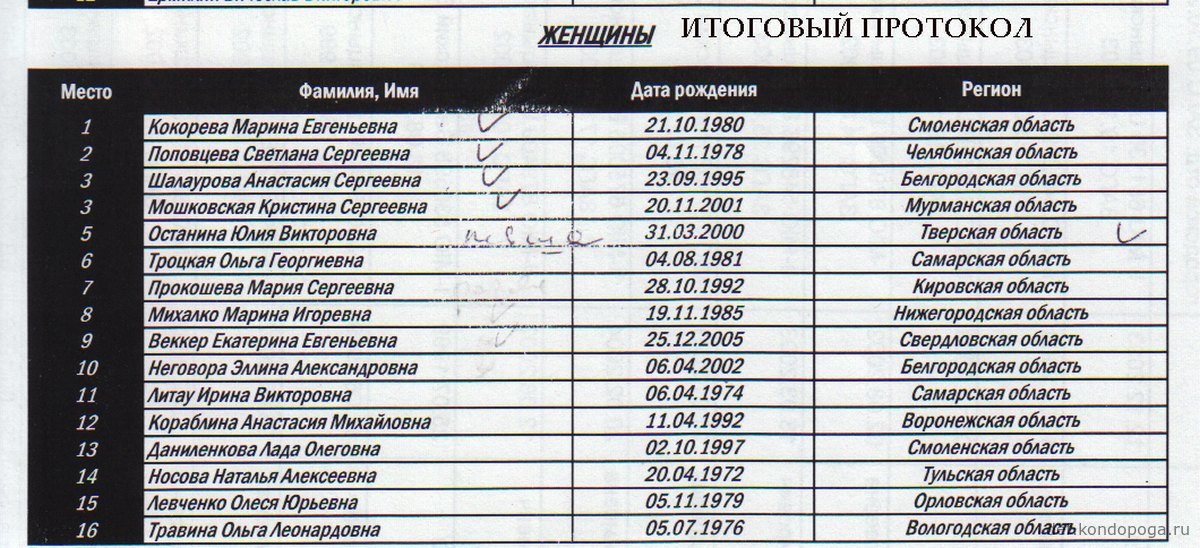 ЖЕНЩИНЫ ИТОГОВЫЙ ПРОТОКОЛ
Место Фамилия, Имя Дата рождения Регион
1 Кокорева Марина Евгеньевна 21.10.1980 Смоленская область
2 Поповцева Светлана Сергеевна 04.11.1978 Челябинская область
3 Шалаурова Анастасия Сергеевна 23.09.1995 Белгородская область
3 Мошковская Кристина Сергеевна 20.11.2001 Мурманская область
5 Останина Юлия Викторовна 31.03.2000 Тверская область
6 Троцкая Ольга Георгиевна 04.08.1981 Самарская область
7 Прокошева Мария Сергеевна 28.10.1992 Кировская область
8 Михалко Марина Игоревна 19.11.1985 Нижегородская область
9 Веккер Екатерина Евгеньевна 25.12.2005 Свердловская область
10 Неговора Эллина Александровна 06.04.2002 Белгородская область
11 Литау Ирина Викторовна 06.04.1974 Самарская область
12 Кораблина Анастасия Михайловна 11.04.1992 Воронежская область
13 Даниленкова Лада Олеговна 02.10.1997 Смоленская область
14 Носова Наталья Алексеевна 20.04.1972 Тульская область
15 Левченко Олеся Юрьевна 05.11.1979 Орловская область
16 Травина Ольга Леонардовна 05.07.1976 Вологодская область